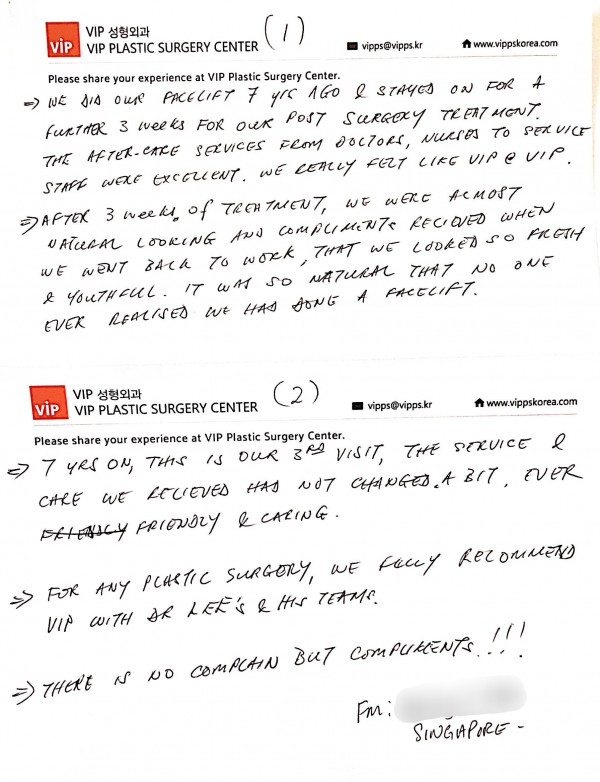 ViP
VIP 성형외과
VIP PLASTIC SURGERY CENTER
(1)
vipps@vipps.kr
www.vippskorea.com
Please share your experience at VIP Plastic Surgery Center.
⇒ WE DID OUR FACELIFT 7 YRS AGO & STAYED ON FOR A
FURTHER 3 WEEKS FOR OUR POST SURGERY TREATMENT.
THE AFTER-CARE SERVICES FROM DOCTORS, NURSES TO SERVICE
STAFF WERE EXCELLENT. WE REALLY FELT LIKE VIP @ VIP.
⇒ AFTER 3 WEEKS OF TREATMENT, WE WERE ALMOST
NATURAL LOOKING AND COMPLIMENTS RECIEVED WHEN
WE WENT BACK TO WORK, THAT WE LOOKED SO FRESH
& YOUTHFUL. IT WAS SO NATURAL THAT NO ONE
EVER REALISED WE HAD DONE A FACELIFT.
ViP
VIP 성형외과
VIP PLASTIC SURGERY CENTER
(2)
vipps@vipps.kr
www.vippskorea.com
Please share your experience at VIP Plastic Surgery Center.
⇒ 7 YRS ON, THIS IS OUR 3RD VISIT, THE SERVICE &
CARE WE RELIEVED HAD NOT CHANGED A BIT. EVER
FRIENDLY FRIENDLY & CARING.
⇒ FOR ANY PLASTIC SURGERY, WE FULLY RECOMMEND
VIP WITH DR LEE'S & HIS TEAMS.
⇒ THERE IS NO COMPLAIN BUT COMPLIMENTS.!!!
FM:
SINGAPORE -